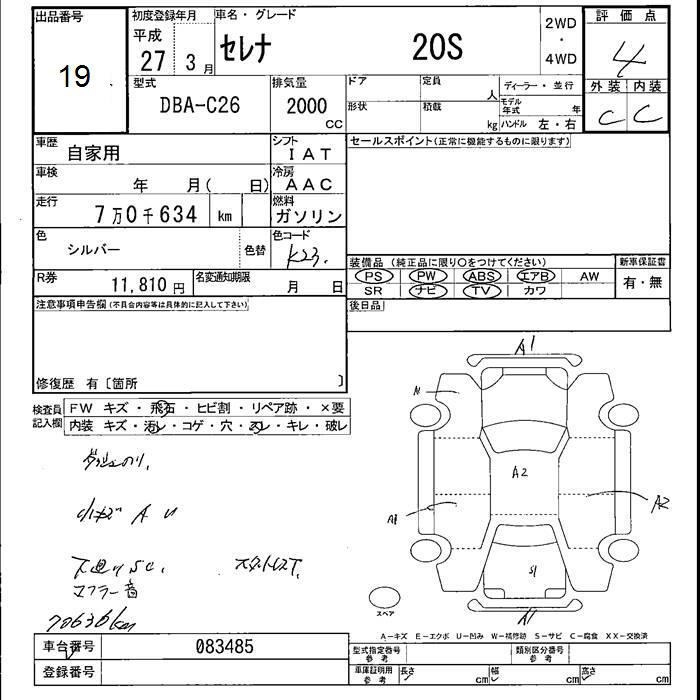 出品番号 初度登録年月 車名・グレード 2WD 評価点
19 平成 27 3月 セレナ 20S ・ 4WD 4
型式 排気量 ドア 定員 人 ディーラー・並行 外装 内装
DBA-C26 2000 CC 形状 積載 kg モデル年式 年 ハンドル 左・右 C C
車歴 自家用 シフト IAT セールスポイント(正常に機能するものに限ります)
車検 年 月( 日) 冷房 AAC
走行 7万0千634 km 燃料 ガソリン
色 シルバー 色替 色コード K23.
装備品(純正品に限り〇をつけてください) 新車保証書
PS PW ABS エアB AW 有・無
SR ナビ TV カワ
R券 11,810円 名変通知期限 月 日
後日品
注意事項申告欄(不具合内容等は具体的に記入して下さい)
修復歴 有〔箇所 〕
検査員記入欄 FW キズ・飛石・ヒビ割・リペア跡・×要
内装 キズ・汚レ・コゲ・穴・スレ・キレ・破レ
A1
A2
A2
S1
A1
小キズ A U
下廻りSC.
マフラー音
70636km
スペア
A−キズ E−エクボ U−凹み W−補修跡 S−サビ C−腐食 XX−交換済
車台番号 083485
登録番号
型式指定番号 参考 類別区分番号 参考
車庫証明用 参考 長さ cm 幅 cm 高さ cm